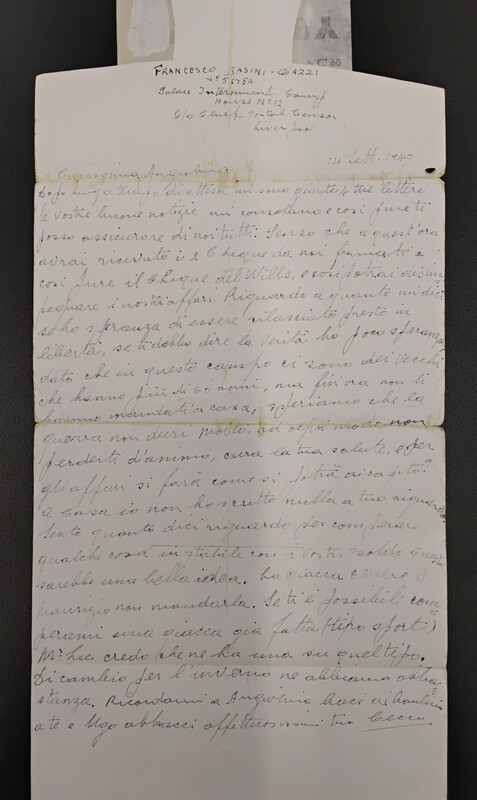 FRANCESCO BASINI-GAZZI
Nº 56454
Palace Internment Camp
House Nº 12
C/o Chief Postal Censor
Liverpool
14 Sett. 1940
Carissima Angiolina
Dopo lungo tempo di attesa mi sono giunte 4 tue lettere
le vostre buone notizie mi consolano e così pure ti
posso assicurare di noi tutti. Penso che a quest'ora
avrai ricevuto i 2 Cheque da noi firmati e
così pure il Cheque del Wills, e così potrai disim
pegnare i nostri affari. Riguardo a quanto mi dici
se ho speranza di essere rilasciato presto in
libertà, se ti debbo dire la verità ho poco speranza
dato che in questo campo ci sono dei vecchi
che hanno più di 60 anni, ma fin'ora non li
hanno mandati a casa, speriamo che la
guerra non duri molto, ad ogni modo non
perderti d'animo, cura la tua salute, e per
gli affari si farà come si potrà ai capito?
a Casa io non ho scritto nulla a tuo riguardo.
Sento quanto dici riguardo per comperare
qualche cosa in stabile con i vostri soldi questa
sarebbe una bella idea. La giacca cenere di
Maurizio non mandarla. Se ti è possibile com
perami una giacca già fatta (tipo sport)
Mr credo che ne ha una su quel tipo.
Di cambio per l'inverno ne abbiamo abba
stanza. Ricordami a Angiolina baci ai bambini
a te e Ugo abbracci affettuosissimi tuo Cecco